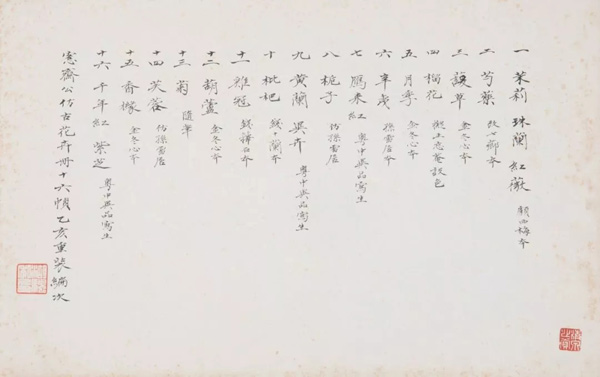 一 茉莉 珠蘭 紅薇 顧西梅本
二 芍藥 改七薌本
三 諼草 金冬心本
四 榴花 王忘庵設色
五 月季 金冬心本
六 辛夷 孫雪居本
七 雁來紅 粵中異品寫生
八 梔子 仿孫雪居
九 黃蘭 異卉 粵中異品寫生
十 枇杷 錢十蘭本
十一 雞冠 錢蘀石本
十二 葫蘆 金冬心本
十三 菊 隨筆
十四 芙蓉 仿孫雪居
十五 香櫞 金冬心本
十六 千年紅 紫芝 粵中異品寫生
愙齋公仿古花卉冊十六幀乙亥重裝編次